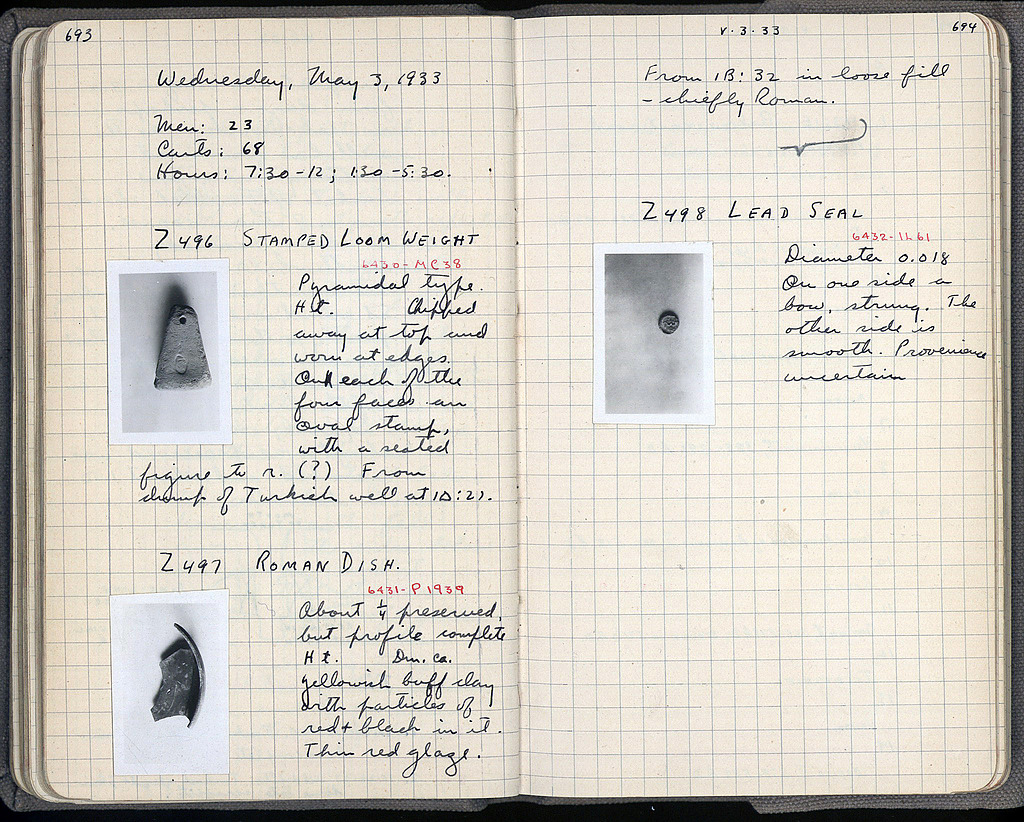 693
Wednesday, May 3, 1933
Men: 23
Carts: 68
Hours: 7:30-12; 1:30-5:30.
Z 496 STAMPED LOOM WEIGHT
6430-MC38
Pyramidal type.
Ht. Chipped
away at top and
worn at edges.
On each of the
four faces an
oval stamp,
with a seated
figure to r. (?) From
dump of Turkish well at
Z 497 ROMAN DISH.
6431-P1939
About 1/4 preserved,
but profile complete
Ht. Dm. ca.
Yellowish buff clay
with particles of
red + black in it.
Thin red glaze.
V.3.33
694
From 1B:32 in loose fill
- chiefly Roman.
Z 498 LEAD SEAL
6432-IL61
Diameter 0.018
On one side a
bow, strung. The
other side is
smooth. Provenience
uncertain